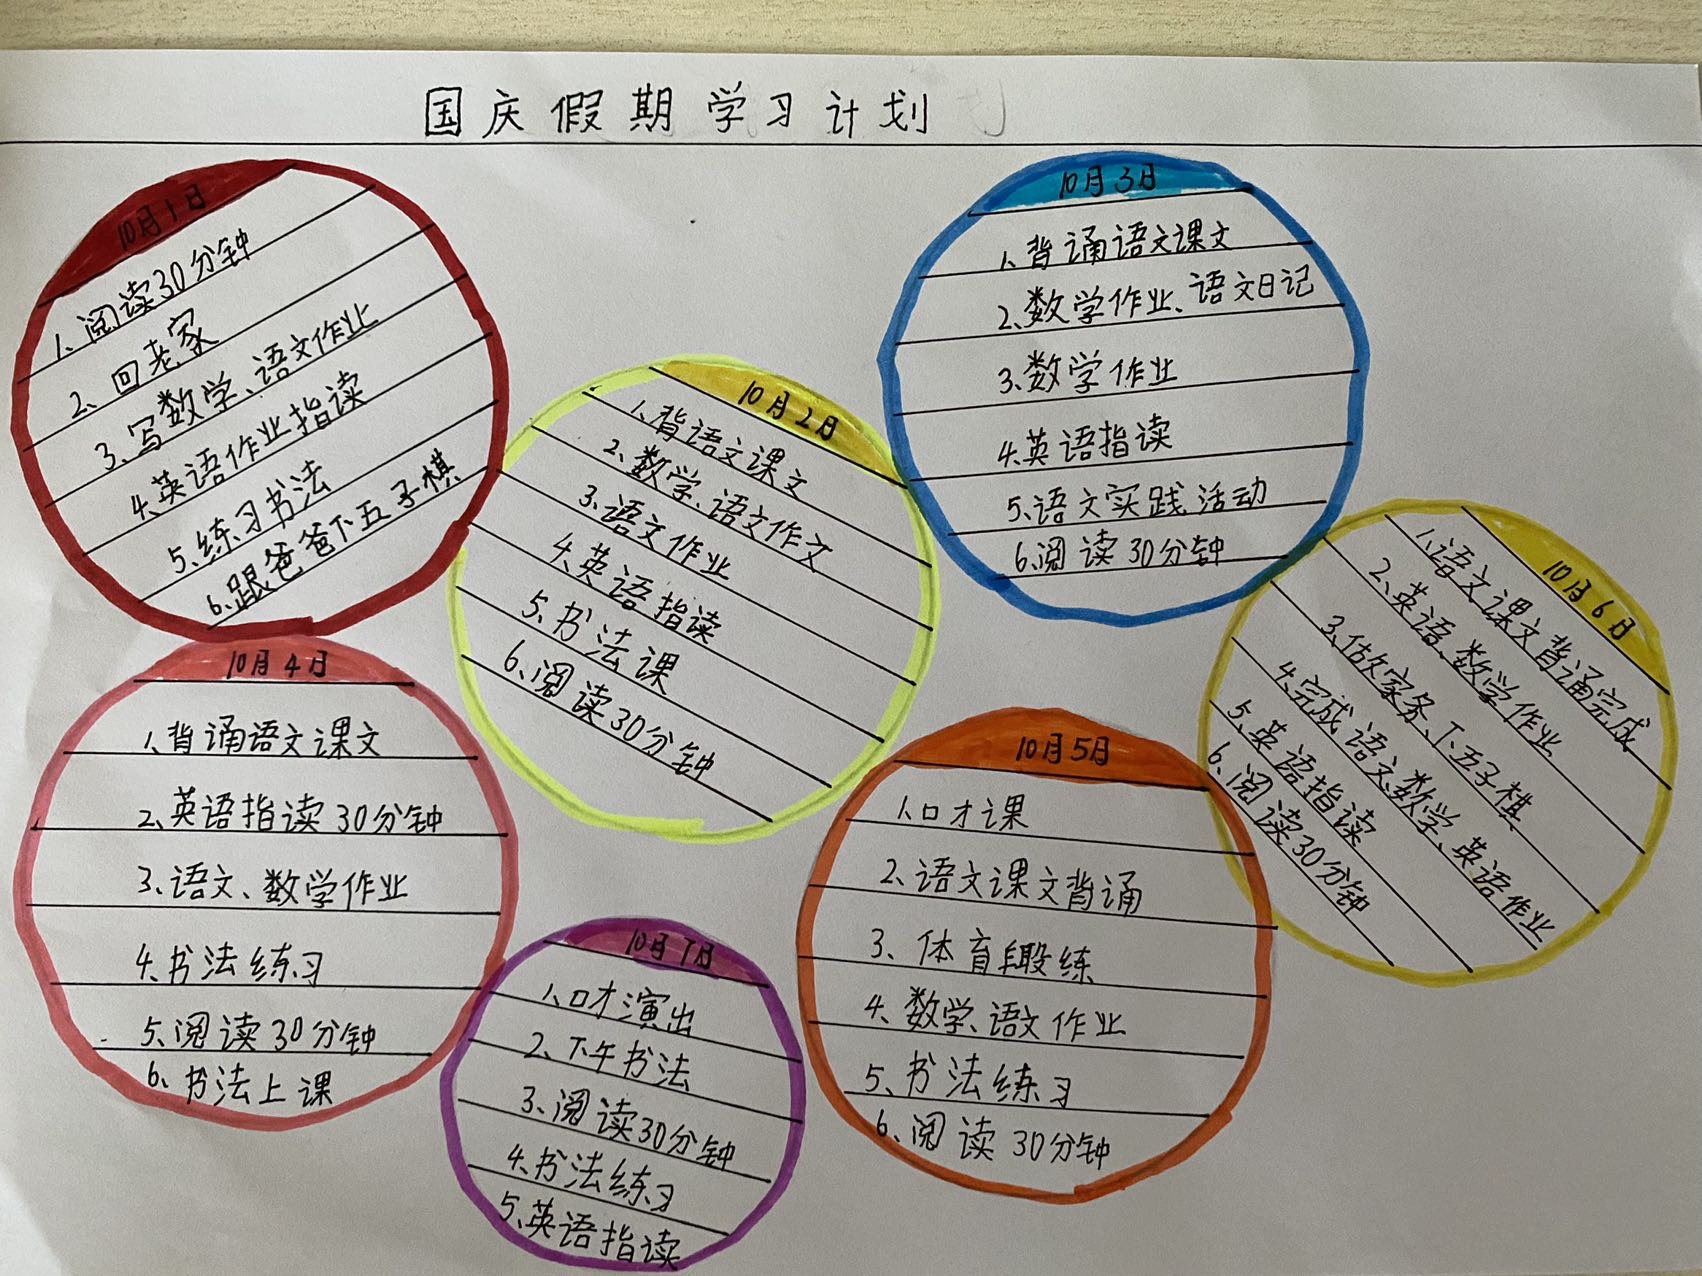 国庆假期学习计划
10月1日
1、阅读30分钟
2、回老家
3、写数学、语文作业
4、英语作业指读
5、练习书法
6、跟爸爸下五子棋
10月2日
1、背语文课文
2、数学、语文作文
3、语文作业
4、英语指读
5、书法课
6、阅读30分钟
10月3日
1、背诵语文课文
2、数学作业、语文日记
3、数学作业
4、英语指读
5、语文实践活动
6、阅读30分钟
10月4日
1、背诵语文课文
2、英语指读30分钟
3、语文、数学作业
4、书法练习
5、阅读30分钟
6、书法上课
10月5日
1、口才课
2、语文课文背诵
3、体育锻练
4、数学、语文作业
5、书法练习
6、阅读30分钟
10月6日
1、语文课文背诵完成
2、英语、数学作业
3、做家务、下五子棋
4、完成语文、数学、英语作业
5、英语指读
6、阅读30分钟
10月7日
1、口才演出
2、下午书法
3、阅读30分钟
4、书法练习
5、英语指读